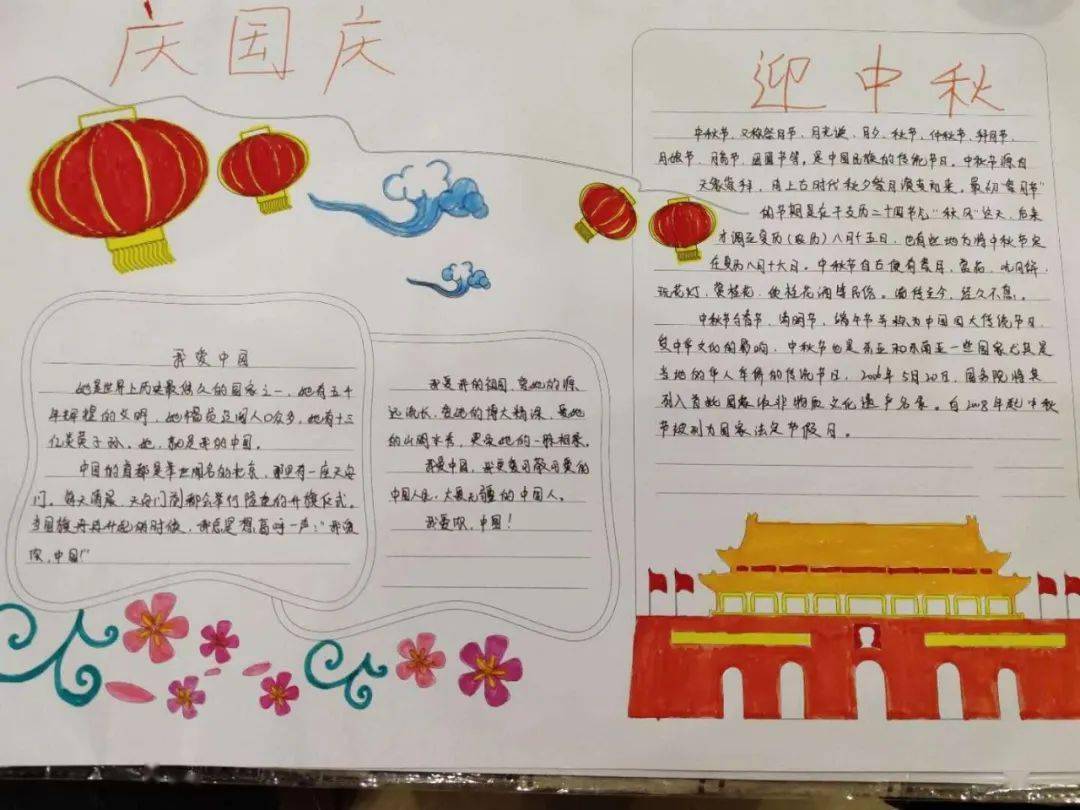 庆国庆
我爱中国
她是世界上历史最悠久的国家之一，她有五千
年辉煌的文明，她幅员辽阔人口众多，她有十三
亿炎黄子孙，她，就是我的中国。
中国的首都是举世闻名的北京，那里有一座天安
门。每天清晨，天安门前都会举行隆重的升旗仪式。
当国旗冉冉升起的时候，我总是想高呼一声："我爱
你，中国！"
我爱我的祖国，爱她的源
远流长，爱她的博大精深，爱她
的山川水秀，更爱她的一脉相承。
我爱中国，我更爱可敬可爱的
中国人民，大爱无疆的中国人。
我爱你，中国！
迎中秋
中秋节，又称祭月节、月光诞、月夕、秋节、仲秋节、拜月节、
月娘节、月亮节、团圆节等，是中国民族的传统节日。中秋节源自
天象崇拜，由上古时代秋夕祭月演变而来。最初"祭月节"
的节期是在干支历二十四节气"秋分"这天，后来
才调至夏历（农历）八月十五日，也有些地方将中秋节定
在夏历八月十六日。中秋节自古便有祭月、赏花、吃月饼、
玩花灯、赏桂花、饮桂花酒等民俗，流传至今，经久不息。
中秋节与春节、清明节、端午节并称为中国四大传统节日。
受中华文化的影响，中秋节也是东亚和东南亚一些国家尤其是
当地的华人华侨的传统节日，2006年5月20日，国务院将其
列入首批国家级非物质文化遗产名录。自2008年起中秋
节被列为国家法定节假日。